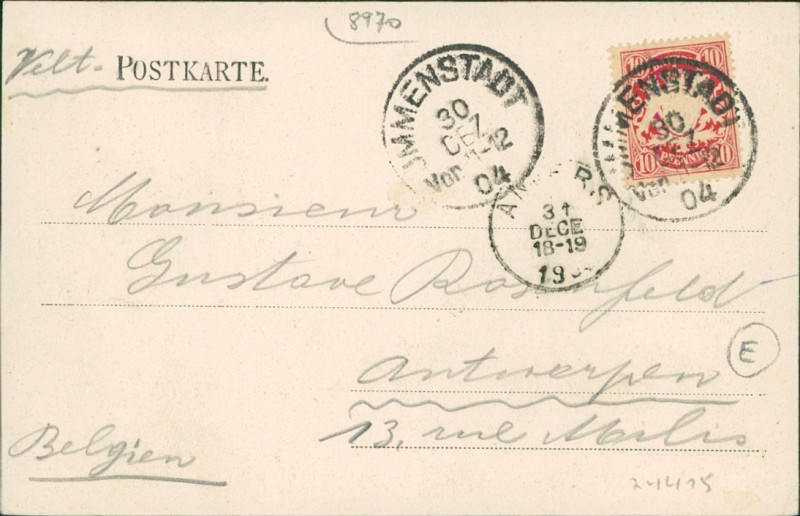 8970
Welt- POSTKARTE.
IMMENSTADT
30
DEZ
Vor 11-12
04
10 10
IMMENSTADT
30
Vor 11-12
04
10 PFENNIG 10
ANVERS
31
DECE
18-19
19
Monsieur
Gustave Rosenfeld
E
Antwerpen
13, rue Malis
Belgien